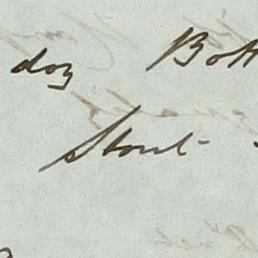 doz Bott
Stout